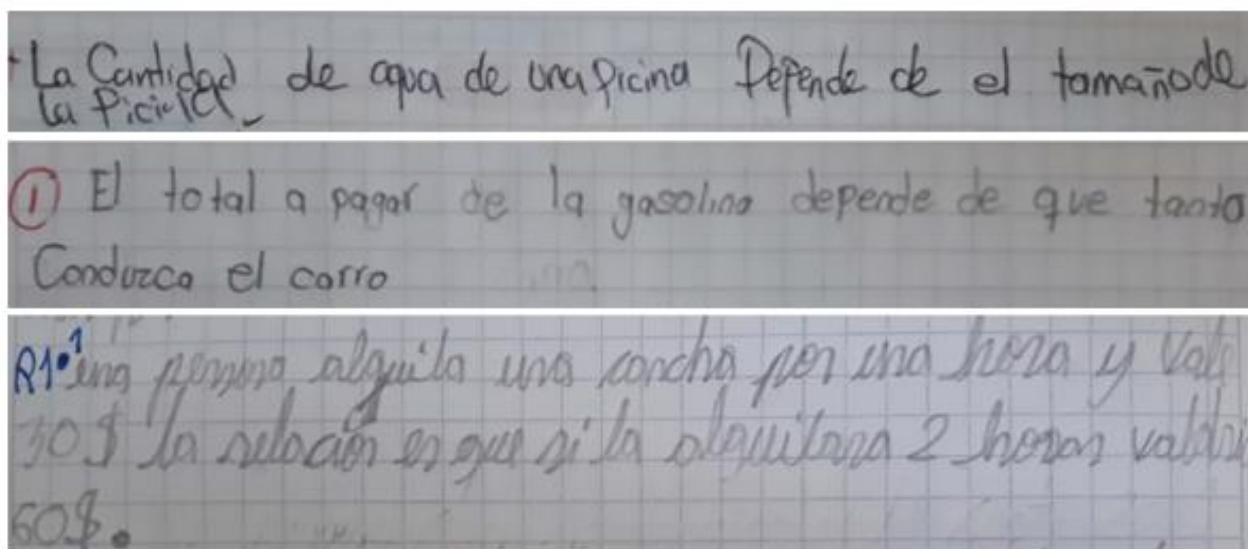 La Cantidad de aqua de una Picina Depende de el tamaño de
la Picina
① El total a pagar de la gasolina depende de que tanto
Conduzca el carro
R1• 1 una persona alquila una cancha por una hora y vale
30$ la relación es que si la alquilara 2 horas valdria
60$.